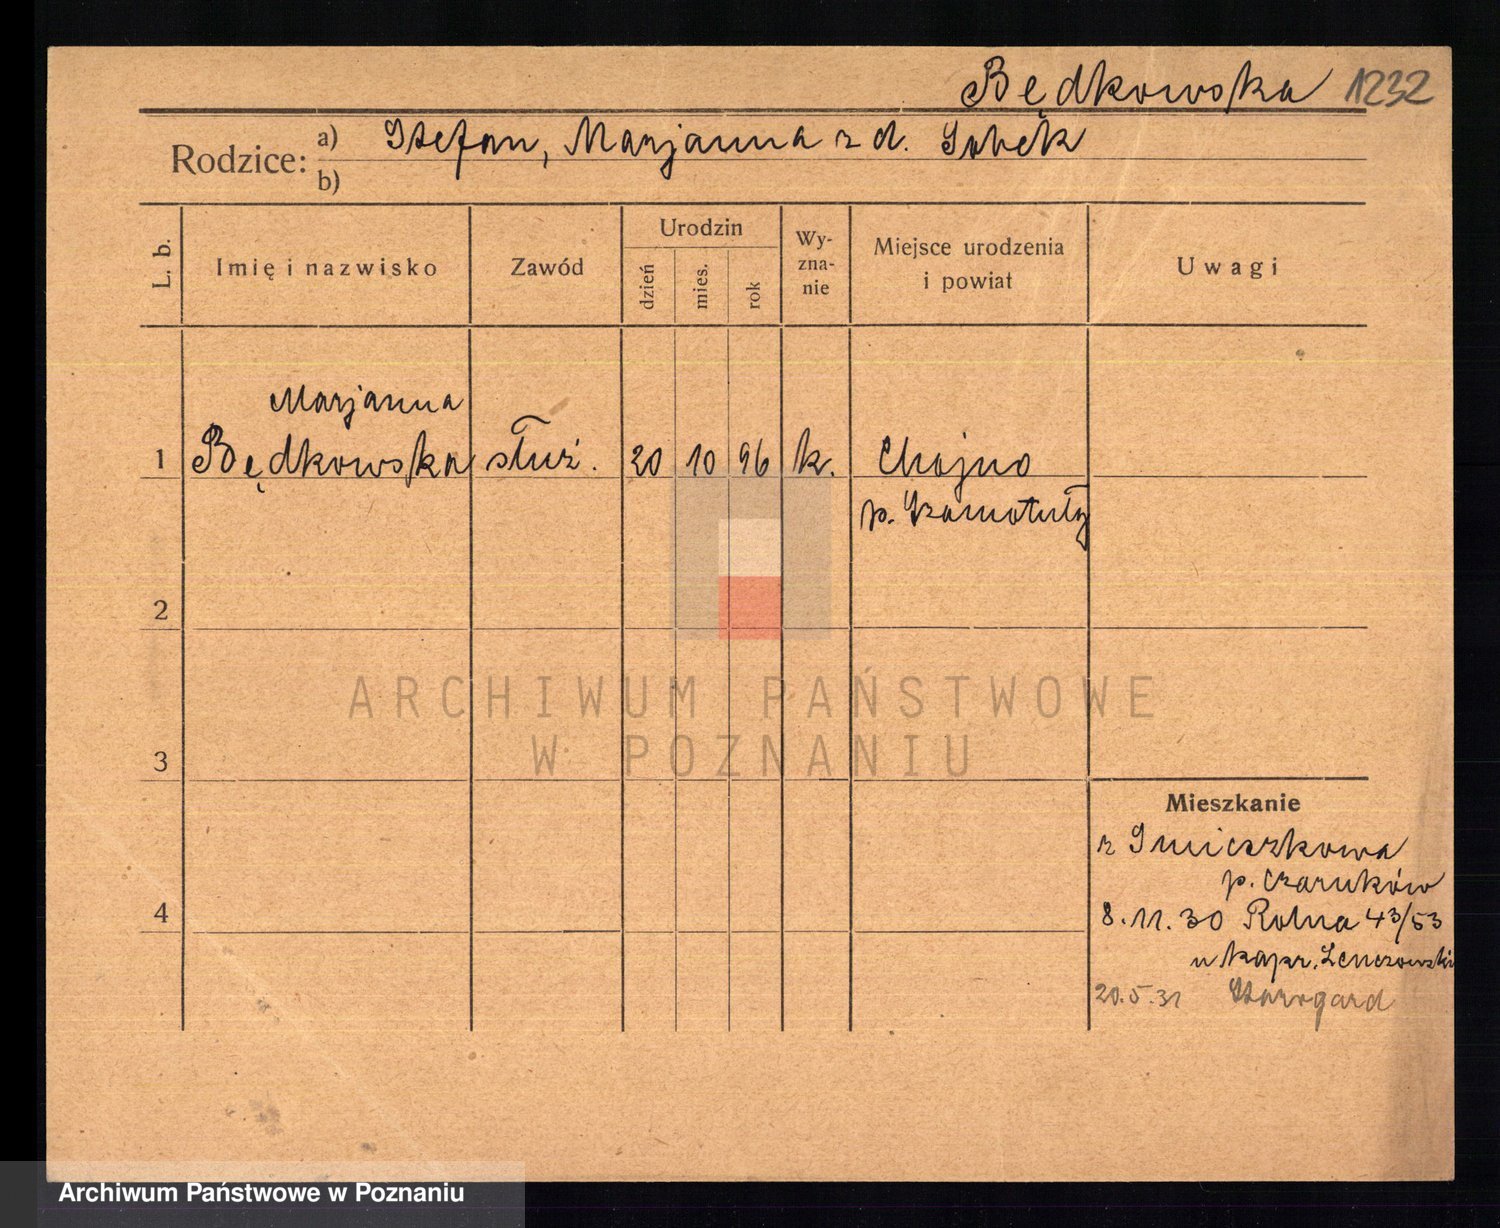 Będkowska 1232
Rodzice: a) Stefan, Marjanna z d. Sobek
b)
L. b.
Imię i nazwisko
Zawód
Urodzin
dzień
mies.
rok
Wy-
zna-
nie
Miejsce urodzenia
i powiat
Uwagi
Marjanna
1 Będkowska służ. 20 10 96 k. Chojno
p. Szamotuły
2
ARCHIWUM PAŃSTWOWE
W POZNANIU
3
Mieszkanie
z Gmiczkowa
p. Czarnków
4
8.11.30 Rolna 43/53
u kapr. Lenczowski
20.5.31 Starogard
Archiwum Państwowe w Poznaniu